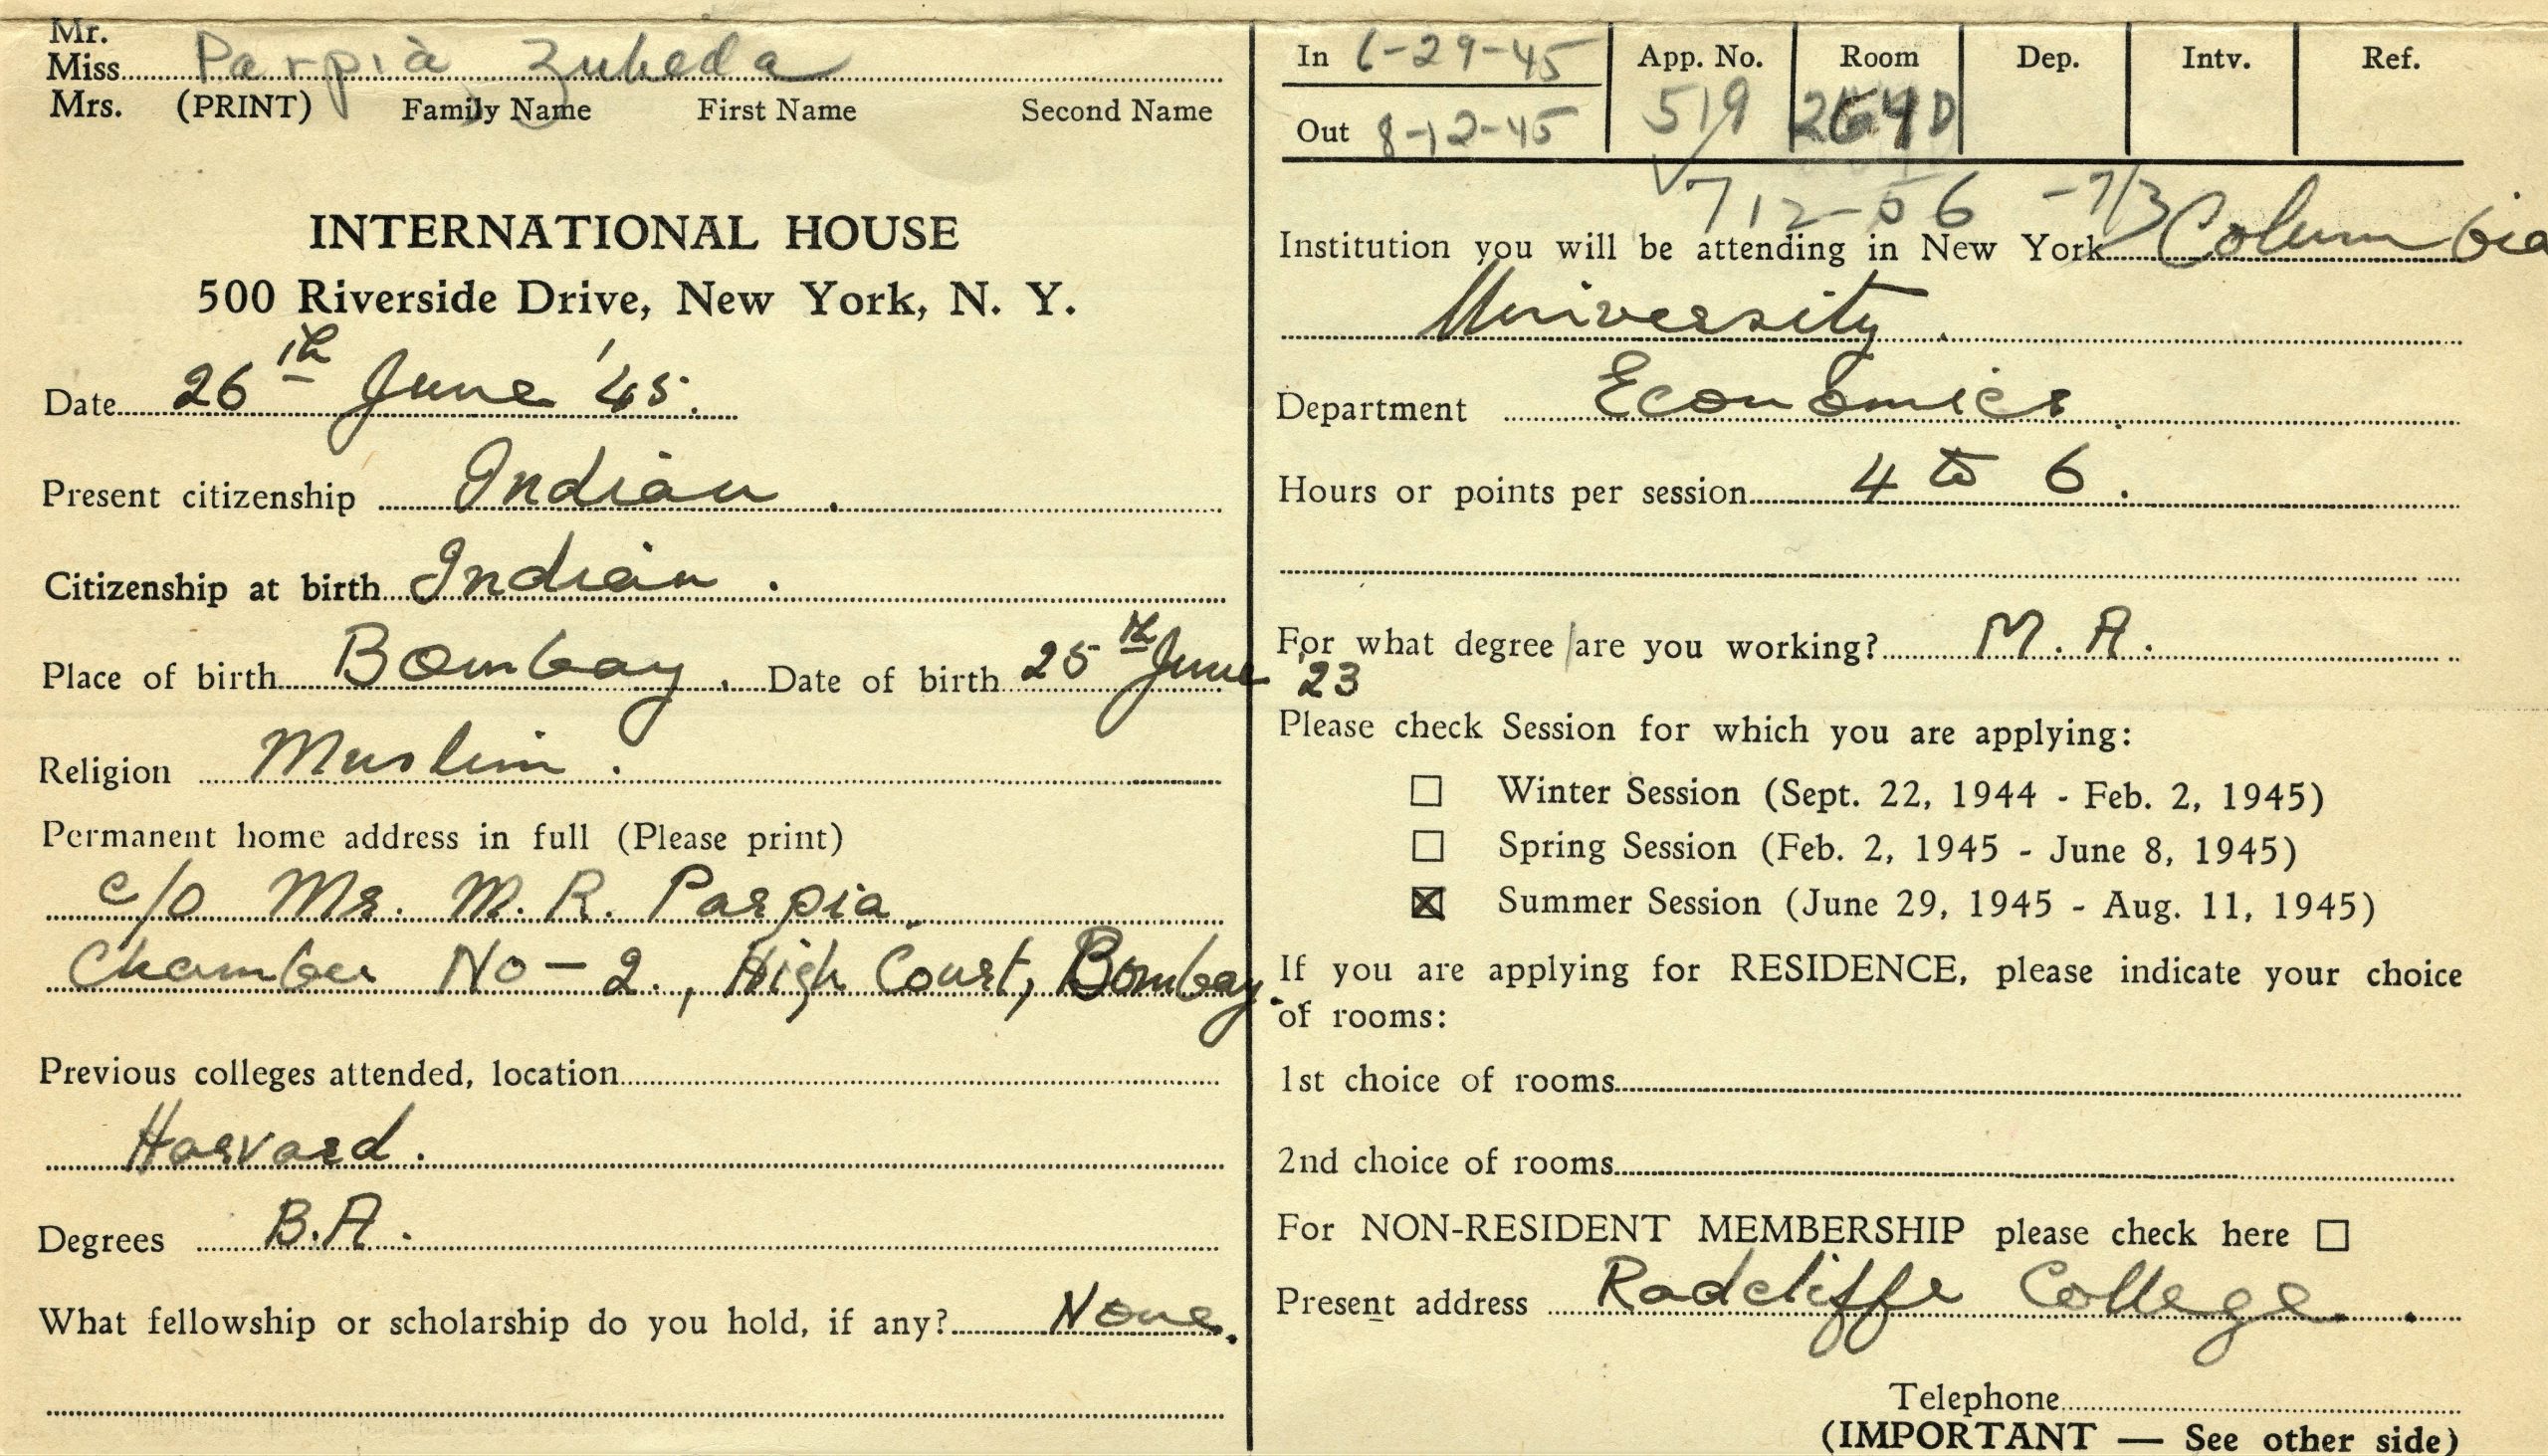 Mr.
Miss Parpia Zubeda
Mrs. (PRINT) Family Name First Name Second Name
INTERNATIONAL HOUSE
500 Riverside Drive, New York, N. Y.
Date 26th June '45.
Present citizenship Indian.
Citizenship at birth Indian.
Place of birth Bombay. Date of birth 25th June '23
Religion Muslim.
Permanent home address in full (Please print)
c/o Mr. M. R. Parpia.
Chamber No-2., High Court, Bombay.
Previous colleges attended, location
Harvard.
Degrees B.A.
What fellowship or scholarship do you hold, if any? None.
In 6-29-45 App. No. Room Dep. Intv. Ref.
Out 8-12-45 519
712-56 -7/3
Institution you will be attending in New York Columbia
University.
Department Economics.
Hours or points per session 4 to 6.
For what degree are you working? M. A.
Please check Session for which you are applying:
☐ Winter Session (Sept. 22, 1944 - Feb. 2, 1945)
☐ Spring Session (Feb. 2, 1945 - June 8, 1945)
☒ Summer Session (June 29, 1945 - Aug. 11, 1945)
If you are applying for RESIDENCE, please indicate your choice
of rooms:
1st choice of rooms
2nd choice of rooms
For NON-RESIDENT MEMBERSHIP please check here ☐
Present address Radcliffe College.
Telephone
(IMPORTANT — See other side)